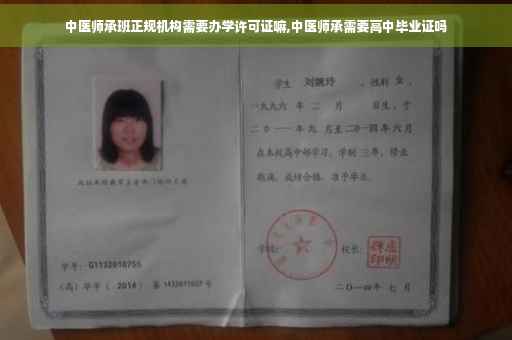 中医师承班正规机构需要办学许可证嘛,中医师承需要高中毕业证吗
学生 刘婉玲 ，性别 女 ，
一九九六 年 二 月 日生，于
二〇一一 年 九 月至 二〇一四 年 六 月
在本校高中部学习，学制 三 年，修业
期满，成绩合格，准予毕业。
学号： G1132010755
(高) 毕字 ( 2014 ) 第 1432011027 号
学校：
校长：
二〇一四年 七 月